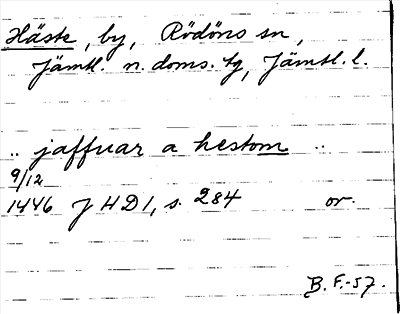 Häste, by, Rödöns sn,
Jämtl. n. doms. tg, Jämtl. l.
.. jaffuar a hestom ..
9/12
1446 JHD1, s. 284 or.
B. F.-57.